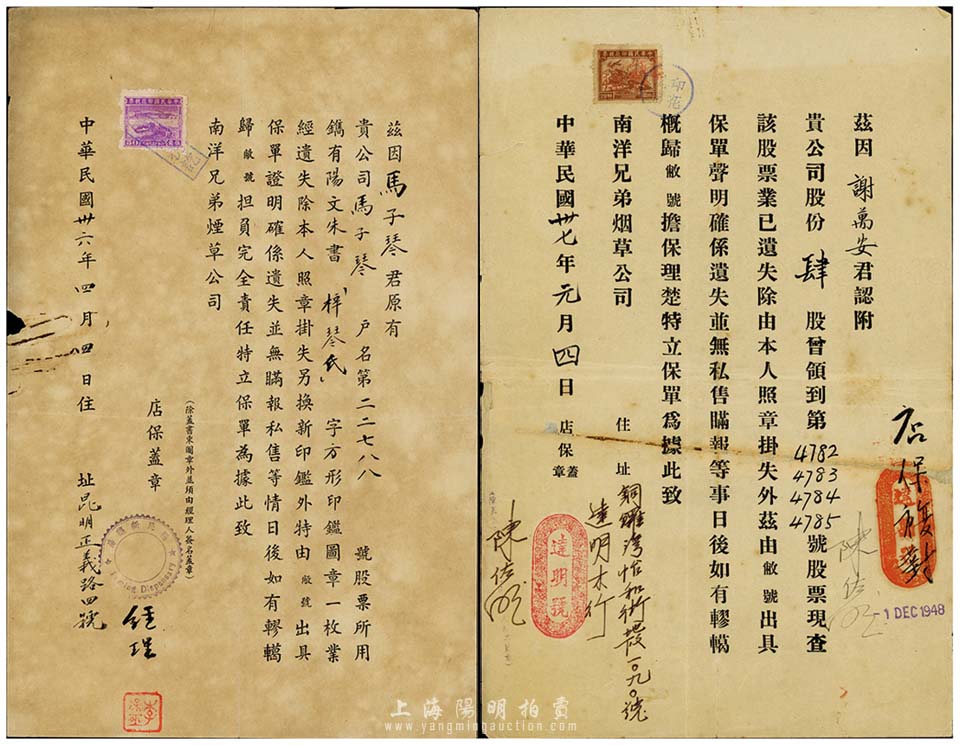 茲因謝萬安君認附
貴公司股份肆股曾領到第4782 4783 4784 4785號股票現查
該股票業已遺失除由本人照章掛失外茲由敝號出具
保單聲明確係遺失並無私售瞞報等事日後如有轇轕
概歸敝號擔保理楚特立保單為據此致
南洋兄弟烟草公司
住址銅鑼灣怡和街
達明木行
中華民國卅七年元月四日
店保蓋章
達明號
印花
1 DEC 1948
茲因馬子琴君原有
貴公司馬子琴戶名第二二七八八號股票所用
鐫有陽文朱書梓琴氏字方形印鑑圖章一枚業
經遺失除本人照章掛失另換新印鑑外特由敝號出具
保單證明確係遺失並無瞞報私售等情日後如有轇轕
歸敝號担負完全責任特立保單為據此致
南洋兄弟煙草公司
(除蓋書柬圖章外並須由經理人簽名蓋章)
店保蓋章
經理
中華民國卅六年四月四日住址昆明正義路四號
Dispensary
上海陽明拍賣
www.yangmingauction.com